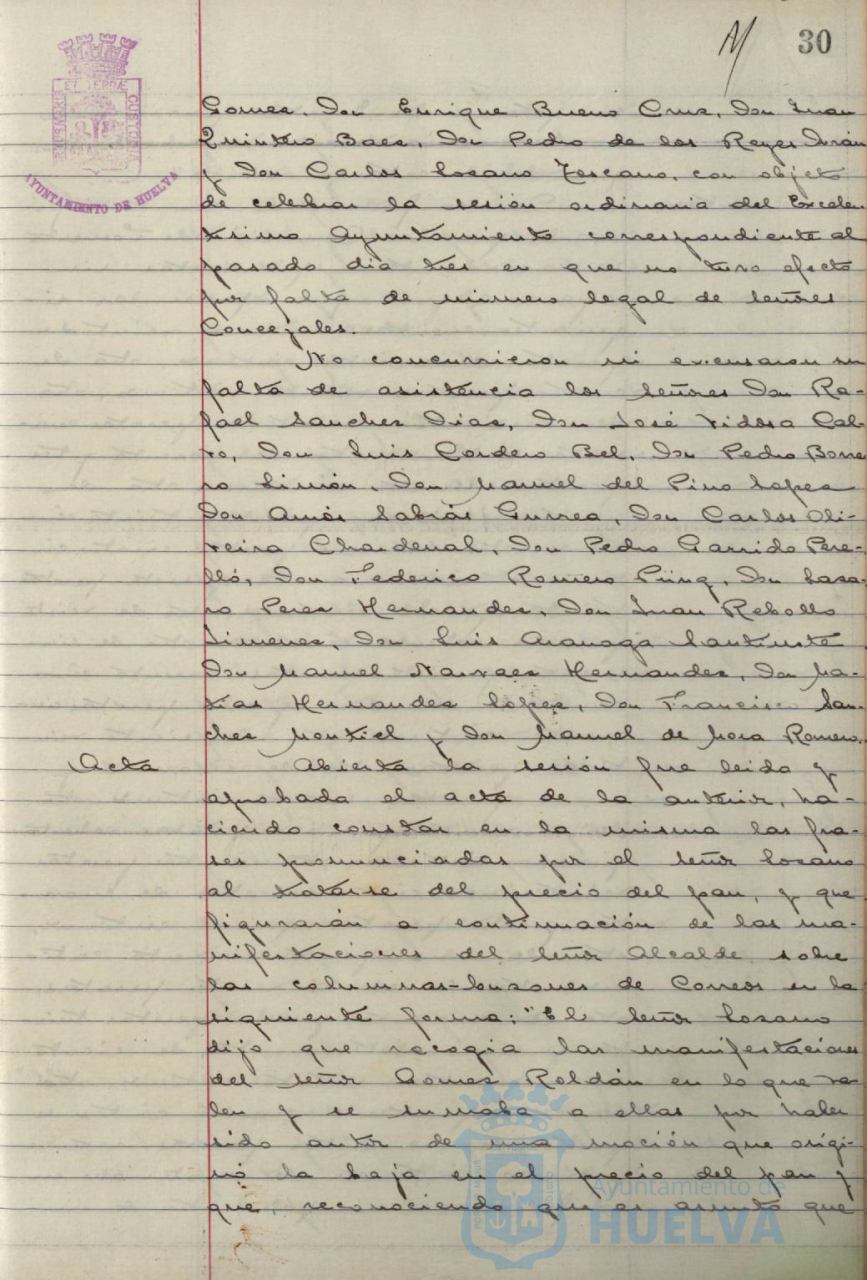 30
PORTUS MARIS ET TERRAE CUSTODIA
AYUNTAMIENTO DE HUELVA
Gomez, Don Enrique Bueno Cruz, Don Juan
Quintero Baez, Don Pedro de los Reyes Durán
y Don Carlos Lozano Toscano, con objeto
de celebrar la sesión ordinaria del Excelen-
tísimo Ayuntamiento correspondiente al
pasado día tres en que no tuvo efecto
por falta de número legal de señores
Concejales.
No concurrieron ni excusaron su
falta de asistencia los señores Don Ra-
fael Sanchez Diaz, Don José Vidosa Cal-
vo, Don Luis Cordero Bel, Don Pedro Borre
ro Limón, Don Manuel del Pino Lopez
Don Amós Sabrás Gurrea, Don Carlos Oli-
veira Chardenal, Don Pedro Garrido Pere-
lló, Don Federico Romero Puig, Don Laza-
ro Perez Hernandez, Don Juan Rebollo
Jimenez, Don Luis Aranaga Santiuste
Don Manuel Narvaez Hernandez, Don Ma-
tias Hernandez Lopez, Don Francisco San-
chez Montiel y Don Manuel de Mora Romero.
Acta Abierta la sesión fue leida y
aprobada el acta de la anterior, ha-
ciendo constar en la misma las fra-
ses pronunciadas por el señor Lozano
al tratarse del precio del pan, y que
figurarán a continuación de las ma-
nifestaciones del señor Alcalde sobre
las columnas-buzones de Correos en la
siguiente forma: "El señor Lozano
dijo que recogia las manifestaciones
del señor Gomez Roldán en lo que va-
len y se sumaba a ellas por haber
sido autor de una moción que origi-
nó la baja en el precio del pan y
que, reconociendo que es asunto que
Ayuntamiento de
HUELVA